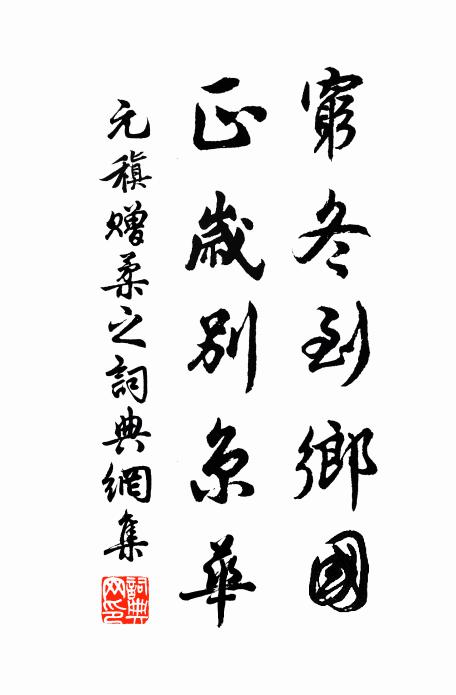 窮冬到鄉國
正歲別京華
元稹贈柔之詞典網集
詞典网印